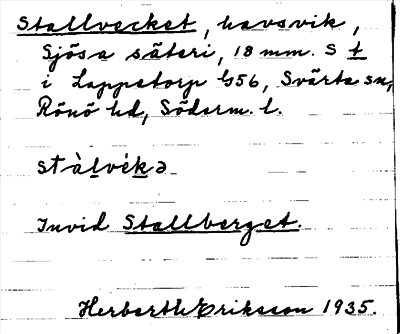 Stallvecket, havsvik,
Sjösa säteri, 18 mm. S t
i Lappetorp G56, Svärta sn,
Rönö hd, Söderm. l.
stàlvékə
Invid Stallberget.
Herbarth Eriksson 1935.